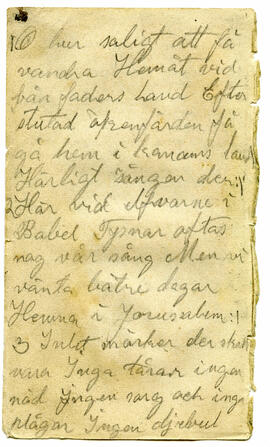 1 O hur saligt att få
vandra Hemåt vid
vår faders hand Efter
slutad ökenfärden få
gå hem i kanaans lan
Härligt sången der:/
2 Här vid älfvarne i
Babel Tystnar oftas
nog vår sång Men vi
vänta bätre dagar
Hemma i Jerusalem:/
3 Intet mörker der skal
vara Inga tårar ingen
nöd Ingen sorg och inga
plågor Ingen djefvul